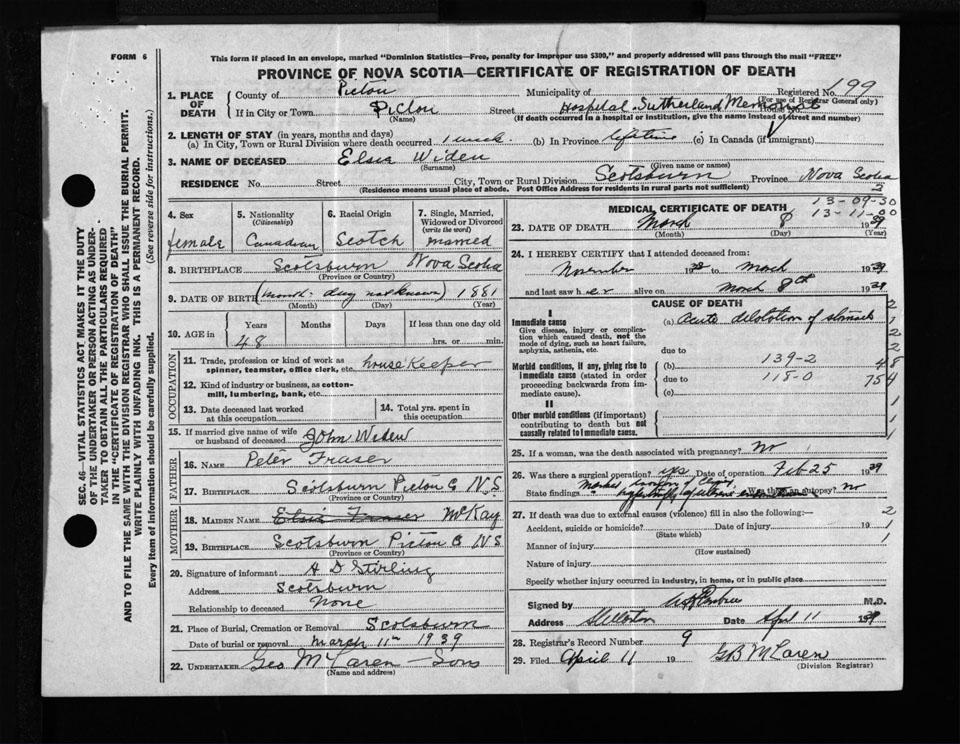 FORM 6
This form if placed in an envelope, marked "Dominion Statistics—Free, penalty for improper use $300," and properly addressed will pass through the mail "FREE"
PROVINCE OF NOVA SCOTIA—CERTIFICATE OF REGISTRATION OF DEATH
1. PLACE OF DEATH County of Pictou Municipality of Registered No. 199
(For use of Registrar General only)
If in City or Town Pictou Street Hospital Sutherland Memorial House No.
(Name) (If death occurred in a hospital or institution, give the name instead of street and number)
2. LENGTH OF STAY (in years, months and days)
(a) In City, Town or Rural Division where death occurred 1 week. (b) In Province lifetime (c) In Canada (if immigrant)
3. NAME OF DECEASED Elsia Widen
(Surname) (Given name or names)
RESIDENCE No. Street City, Town or Rural Division Scotsburn Province Nova Scotia
(Residence means usual place of abode. Post Office Address for residents in rural parts not sufficient)
3
SEC. 46—VITAL STATISTICS ACT MAKES IT THE DUTY
OF THE UNDERTAKER OR PERSON ACTING AS UNDER-
TAKER TO OBTAIN ALL THE PARTICULARS REQUIRED
IN THE "CERTIFICATE OF REGISTRATION OF DEATH"
AND TO FILE THE SAME WITH THE DIVISION REGISTRAR WHO SHALL ISSUE THE BURIAL PERMIT.
WRITE PLAINLY WITH UNFADING INK. THIS IS A PERMANENT RECORD.
Every item of information should be carefully supplied. (See reverse side for instructions.)
4. Sex 5. Nationality 6. Racial Origin 7. Single, Married,
(Citizenship) Widowed or Divorced
(write the word)
female Canadian Scotch married
8. BIRTHPLACE Scotsburn Nova Scotia
(Province or Country)
9. DATE OF BIRTH (month - day not known) 1881
(Month) (Day) (Year)
10. AGE in Years Months Days If less than one day old
48 hrs. or min.
OCCUPATION
11. Trade, profession or kind of work as
spinner, teamster, office clerk, etc. House Keeper
12. Kind of industry or business, as cotton-
mill, lumbering, bank, etc.
13. Date deceased last worked
at this occupation
14. Total yrs. spent in
this occupation
15. If married give name of wife
or husband of deceased John Widen
FATHER
16. NAME Peter Fraser
17. BIRTHPLACE Scotsburn Pictou C N.S.
(Province or Country)
MOTHER
18. MAIDEN NAME Elsia Fraser McKay
19. BIRTHPLACE Scotsburn Pictou C N S
(Province or Country)
20. Signature of informant A D Stirling
Address Scotsburn
Relationship to deceased None
21. Place of Burial, Cremation or Removal Scotsburn
Date of burial or removal March 11th 1939
22. UNDERTAKER Geo McLaren Sons
(Name and address)
MEDICAL CERTIFICATE OF DEATH
13-09-30
13-11-00
23. DATE OF DEATH March 8 1939
(Month) (Day) (Year)
24. I HEREBY CERTIFY that I attended deceased from:
November 1938 to March 1939
and last saw her alive on March 8th 1939
CAUSE OF DEATH
I
Immediate cause (a) Acute dilatation of stomach
Give disease, injury or complica-
tion which caused death, not the
mode of dying, such as heart failure,
asphyxia, asthenia, etc.
due to
Morbid conditions, if any, giving rise to
immediate cause (stated in order
proceeding backwards from im-
mediate cause).
(b) 139-2
due to 118-0
(c)
II
Other morbid conditions (if important)
contributing to death but not
causally related to immediate cause.
2
1
2
2
48
754
1
1
1
25. If a woman, was the death associated with pregnancy? No
26. Was there a surgical operation? yes Date of operation Feb 25 1939
State findings Was there an autopsy? no
27. If death was due to external causes (violence) fill in also the following:— 2
Accident, suicide or homicide? Date of injury 19 1
(State which)
Manner of injury
(How sustained)
Nature of injury
Specify whether injury occurred in industry, in home, or in public place
Signed by M.D.
Address Stellarton Date Apr 11 1939
28. Registrar's Record Number 9
29. Filed April 11 19 GB McLaren
(Division Registrar)